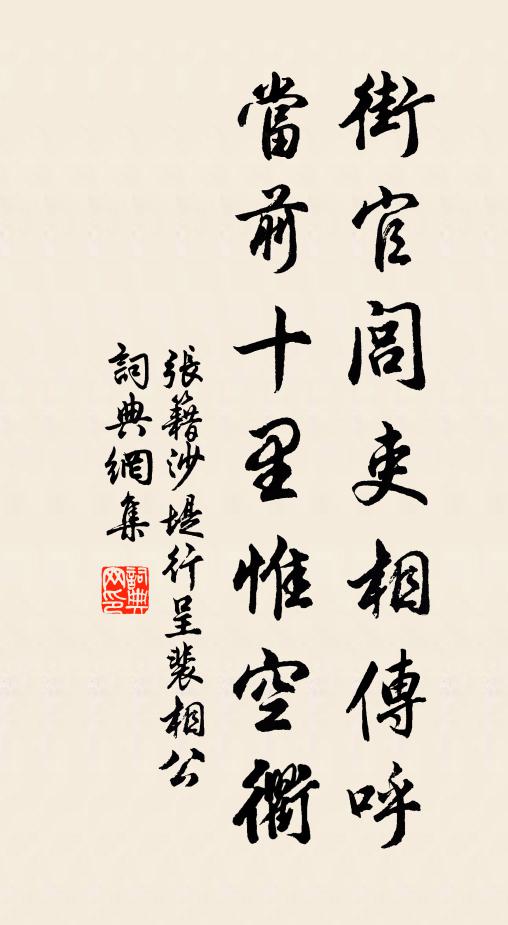 街官閭吏相傳呼
當前十里惟空衢
張籍沙堤行呈裴相公
詞典網集
詞典
网印